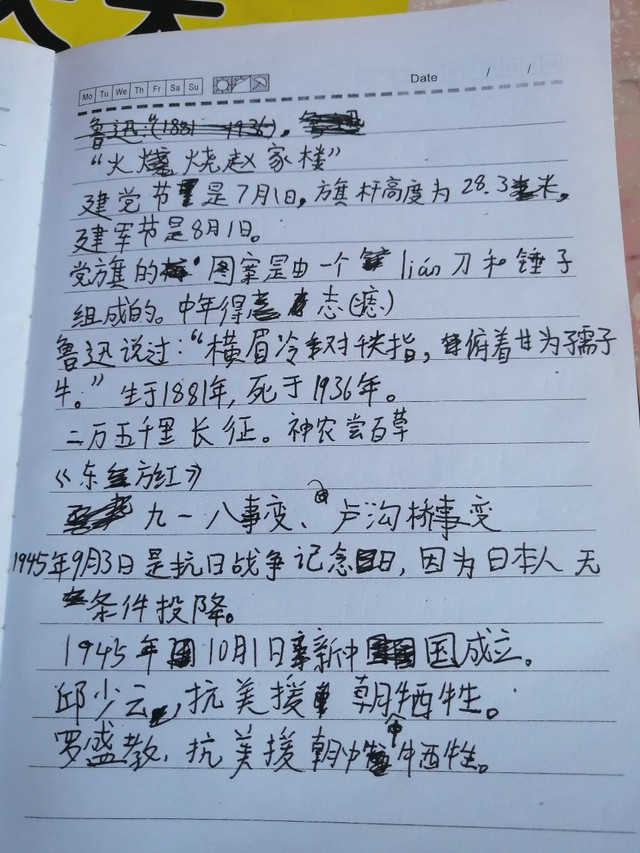 大
Mo Tu We Th Fr Sa Su Date / /
鲁迅:"(1881——1936),
"火烧赵家楼"
建党节是7月1日,旗杆高度为28.3米,
建军节是8月1日。
党旗的图案是由一个lián刀和锤子
组成的。中年得志(瘛)
鲁迅说过:"横眉冷对千夫指,俯着甘为孺子
牛。"生于1881年,死于1936年。
二万五千里长征。神农尝百草
《东方红》
九一八事变、卢沟桥事变
1945年9月3日是抗日战争记念日,因为日本人无
条件投降。
1945年10月1日新中国成立。
邱少云,抗美援朝中牺牲。
罗盛教,抗美援朝中牺牲。